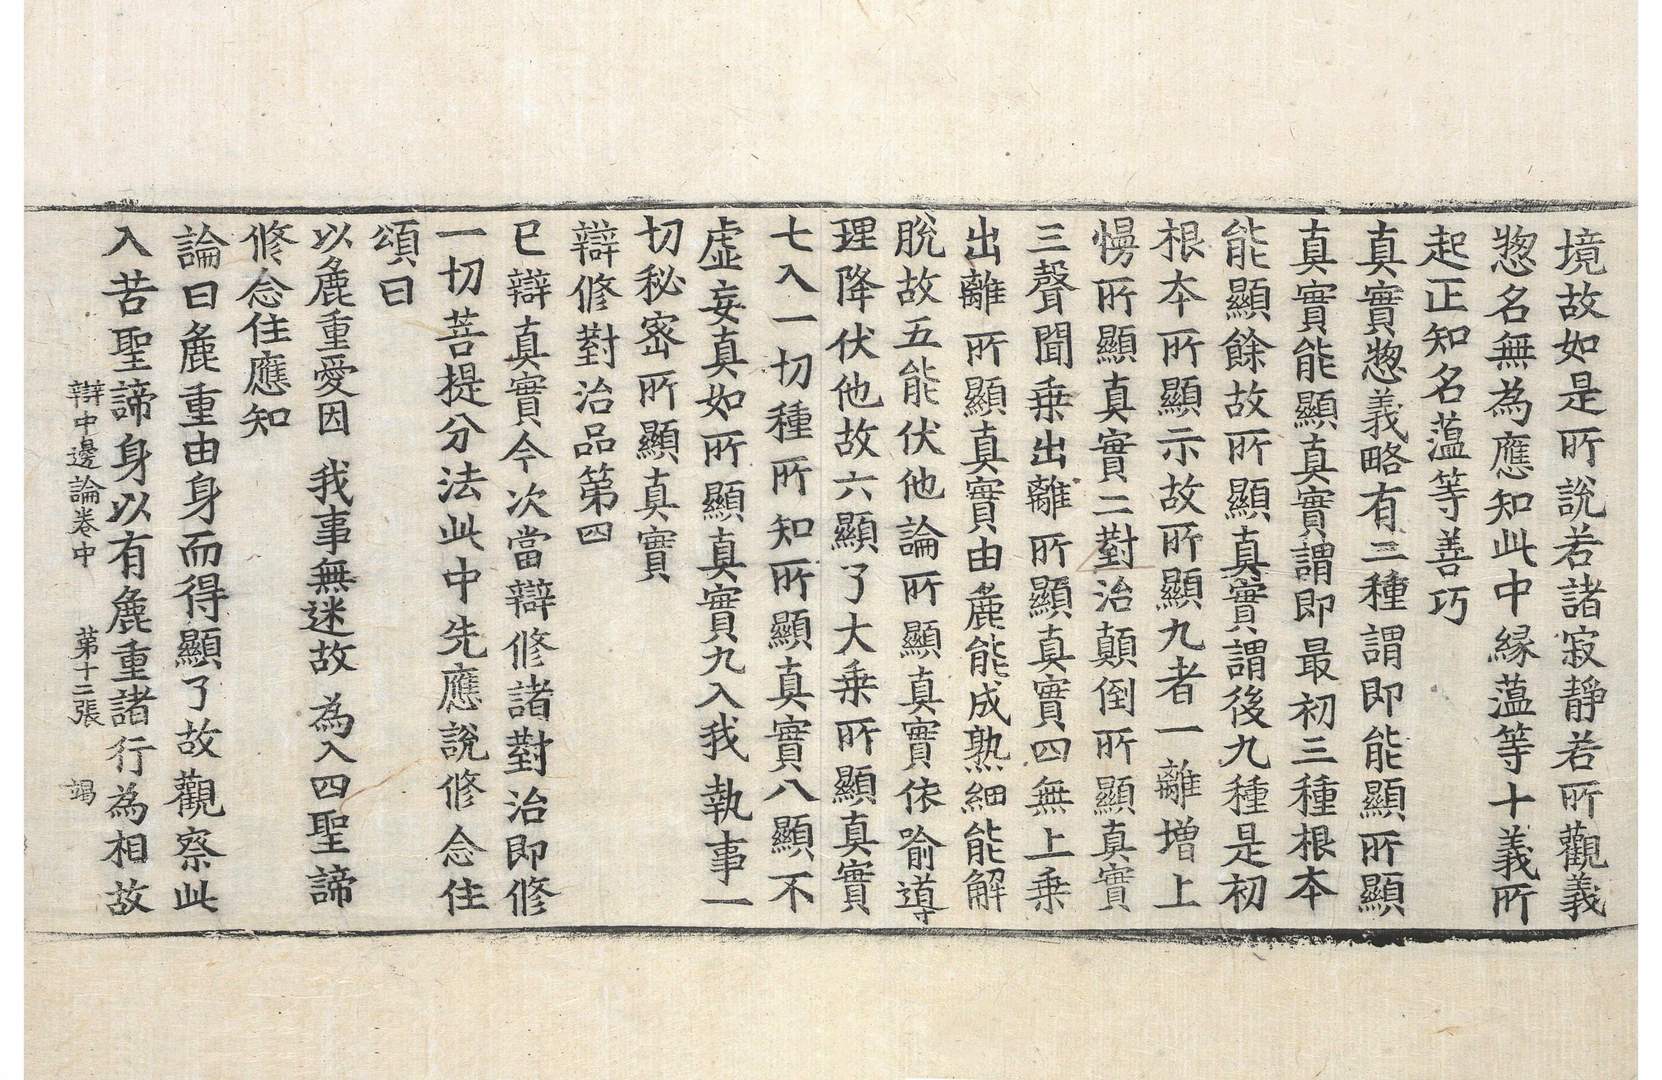 境故如是所說若諸寂靜若所觀義
揔名無為應知此中縁蘊等十義所
起正知名蘊等善巧
真實揔義略有二種謂即能顯所顯
真實能顯真實謂即最初三種根本
能顯餘故所顯真實謂後九種是初
根本所顯示故所顯九者一離增上
慢所顯真實二對治顛倒所顯真實
三聲聞乗出離所顯真實四無上乗
出離所顯真實由麁能成熟細能解
脫故五能伏他論所顯真實依喻導
理降伏他故六顯了大乗所顯真實
七入一切種所知所顯真實八顯不
虛妄真如所顯真實九入我執事一
切秘密所顯真實
辯修對治品第四
已辯真實今次當辯修諸對治即修
一切菩提分法此中先應說修念住
頌曰
以麁重愛因 我事無迷故 為入四聖諦
修念住應知
論曰麁重由身而得顯了故觀察此
入苦聖諦身以有麁重諸行為相故
辯中邊論卷中 第十二張 竭